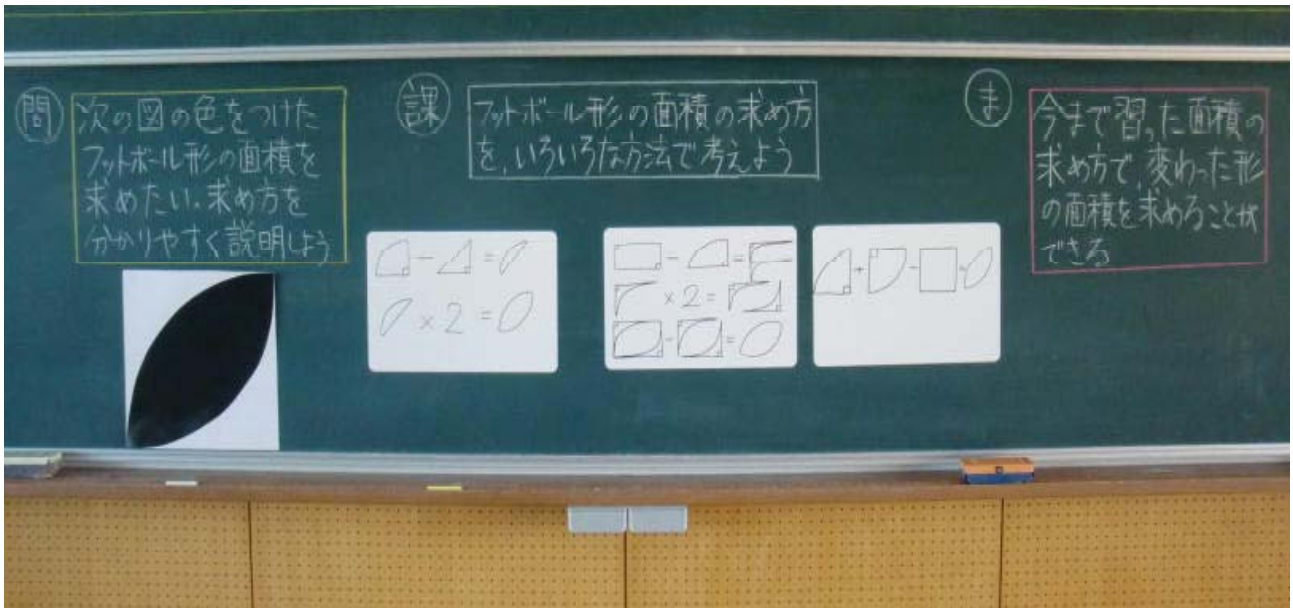 問
次の図の色をつけた
フットボール形の面積を
求めたい。求め方を
分かりやすく説明しよう
課
フットボール形の面積の求め方
を、いろいろな方法で考えよう
- =
×2=
- =
×2=
- =
+ - =
ま
今まで習った面積の
求め方で、変わった形
の面積を求めることが
できる